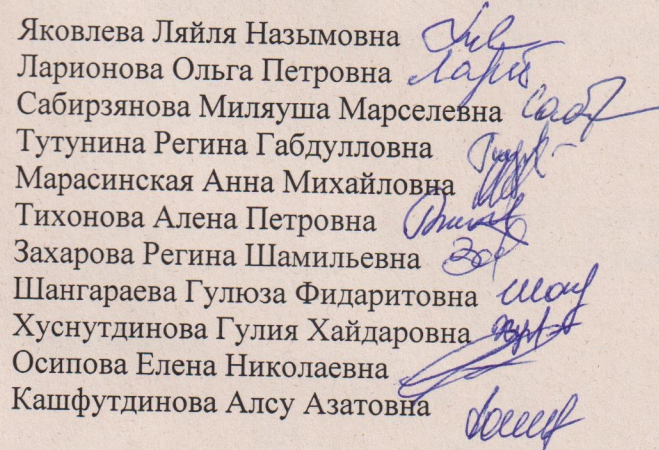 Яковлева Ляйля Назымовна
Ларионова Ольга Петровна
Сабирзянова Миляуша Марселевна
Тутунина Регина Габдулловна
Марасинская Анна Михайловна
Тихонова Алена Петровна
Захарова Регина Шамильевна
Шангараева Гулюза Фидаритовна
Хуснутдинова Гулия Хайдаровна
Осипова Елена Николаевна
Кашфутдинова Алсу Азатовна